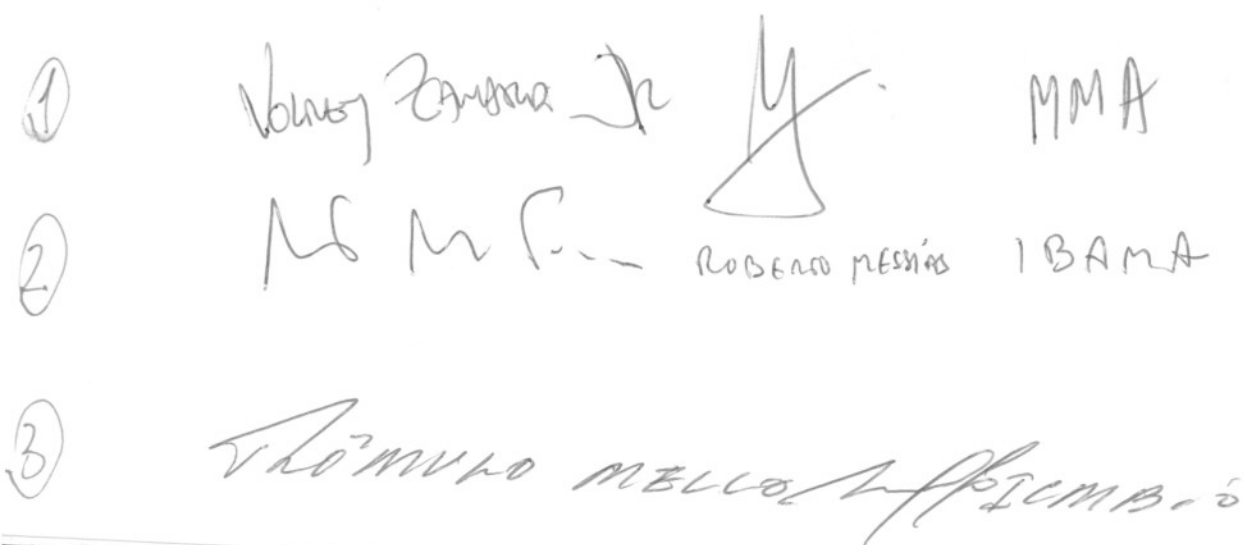 1 Volney Zanardi Jr MMA
2 ROBERTO MESSIAS IBAMA
3 RÔMULO MELLO ICMBIO